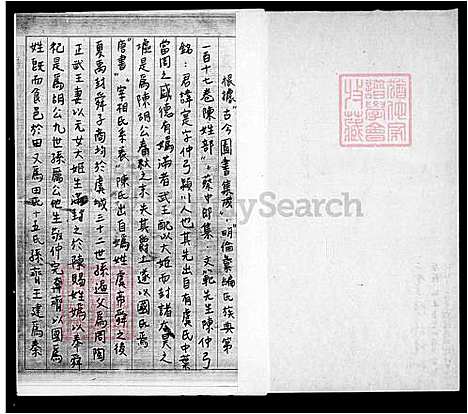 根據"古今圖書集成"明倫彙編氏族典第
一百十七卷陳姓部"蔡中郎集:文範先生陳仲弓
銘:君諱寔字仲弓潁川人也其先出自有虞氏中葉
當周之盛德有媯滿者武王配以大姬而封諸太昊之
墟是為陳胡公春秋之末失其爵土遂以國氏焉
唐書"宰相氏系表"陳氏出自媯姓虞帝舜之後
夏禹封舜子商均於虞城三十二世孫遏父為周陶
正武王妻以元女大姬生滿封之於陳賜姓媯以奉舜
祀是為胡公九世孫厲公他生敬仲完奔齊以國為
姓既而食邑於田又為田氏十五世孫齊王建為秦
猶他家
譜學會
收藏
MySearch